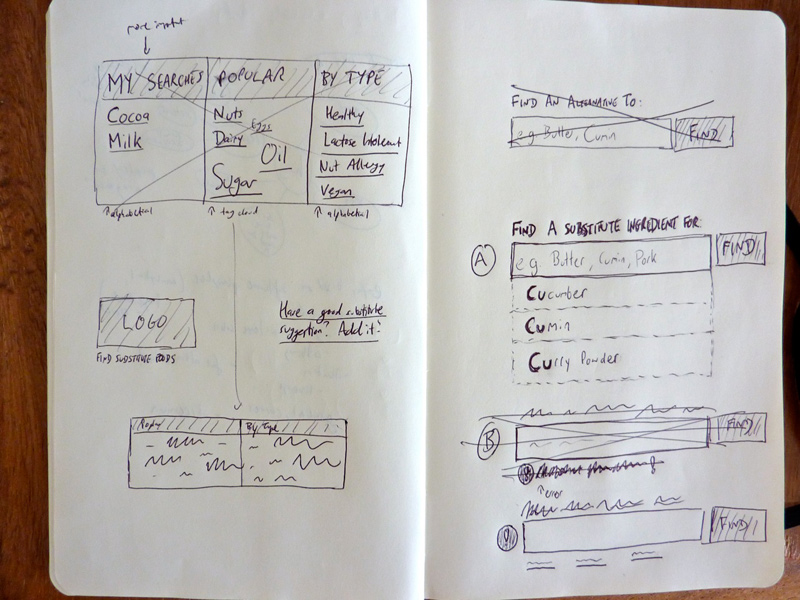 MY SEARCHES
POPULAR
BY TYPE
Cocoa
Milk
Nuts
Eggs
Dairy
Oil
Sugar
Healthy
Lactose Intolerant
Nut Allergy
Vegan
↑ alphabetical
↑ tag cloud
↑ alphabetical
LOGO
FIND SUBSTITUTE FOODS
Have a good substitute
suggestion? Add it!
By Type
FIND AN ALTERNATIVE TO:
e.g. Butter, Cumin
FIND
FIND A SUBSTITUTE INGREDIENT FOR:
A
e.g. Butter, Cumin, Pork
FIND
Cucumber
Cumin
Curry Powder
B
FIND
FIND